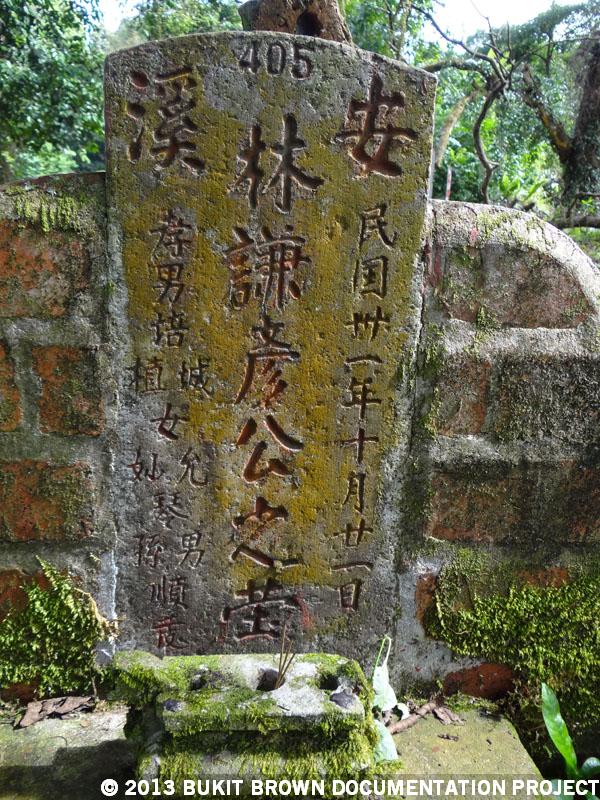 405
安溪
民国卅一年十月廿一日
林謙彥公之茔
孝男培城植女允妙琴男孫順
© 2013 BUKIT BROWN DOCUMENTATION PROJECT